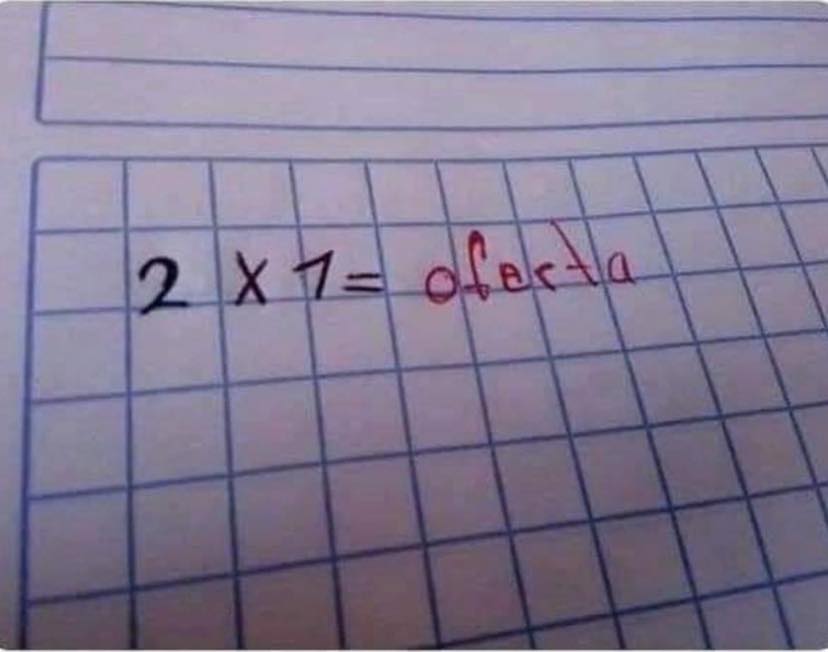 2 x 1 = oferta